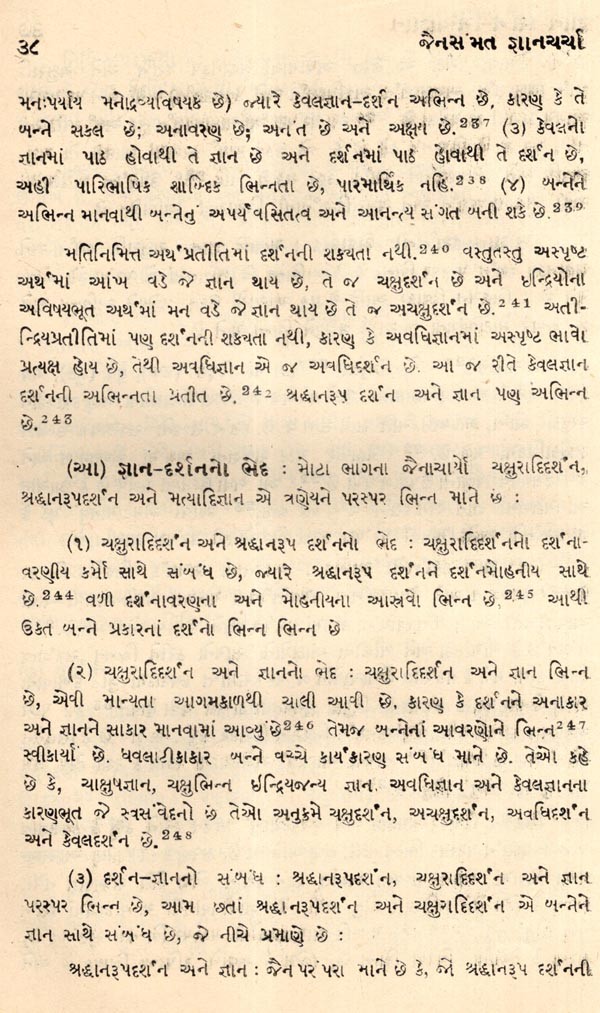 ૩૮ જૈનસંમત જ્ઞાનચર્ચા
મનઃપર્યાય મનોદ્રવ્યવિષયક છે) જ્યારે કેવલજ્ઞાન-દર્શન અભિન્ન છે, કારણ કે તે
બન્ને સકલ છે; અનાવરણ છે; અનંત છે અને અક્ષય છે.૨૩૭ (૩) કેવલનો
જ્ઞાનમાં પાઠ હોવાથી તે જ્ઞાન છે અને દર્શનમાં પાઠ હોવાથી તે દર્શન છે,
અહીં પારિભાષિક શાબ્દિક ભિન્નતા છે, પારમાર્થિક નહિ.૨૩૮ (૪) બન્નેને
અભિન્ન માનવાથી બન્નેનું અપર્યવસિતત્વ અને આનન્ત્ય સંગત બની શકે છે.૨૩૯
મતિનિમિત્ત અર્થપ્રતીતિમાં દર્શનની શક્યતા નથી.૨૪૦ વસ્તુતસ્તુ અસ્પૃષ્ટ
અર્થમાં આંખ વડે જે જ્ઞાન થાય છે, તે જ ચક્ષુદર્શન છે અને ઇન્દ્રિયોના
અવિષયભૂત અર્થમાં મન વડે જે જ્ઞાન થાય છે તે જ અચક્ષુદર્શન છે.૨૪૧ અતી-
ન્દ્રિયપ્રતીતિમાં પણ દર્શનની શક્યતા નથી, કારણ કે અવધિજ્ઞાનમાં અસ્પૃષ્ટ ભાવો
પ્રત્યક્ષ હોય છે, તેથી અવધિજ્ઞાન એ જ અવધિદર્શન છે. આ જ રીતે કેવલજ્ઞાન
દર્શનની અભિન્નતા પ્રતીત છે.૨૪૨ શ્રદ્ધાનરૂપ દર્શન અને જ્ઞાન પણ અભિન્ન
છે.૨૪૩
(આ) જ્ઞાન-દર્શનનો ભેદ : મોટા ભાગના જૈનાચાર્યો ચક્ષુરાદિદર્શન,
શ્રદ્ધાનરૂપદર્શન અને મત્યાદિજ્ઞાન એ ત્રણેયને પરસ્પર ભિન્ન માને છે :
(૧) ચક્ષુરાદિદર્શન અને શ્રદ્ધાનરૂપ દર્શનનો ભેદ : ચક્ષુરાદિદર્શનનો દર્શના-
વરણીય કર્મો સાથે સંબંધ છે, જ્યારે શ્રદ્ધાનરૂપ દર્શનને દર્શનમોહનીય સાથે
છે.૨૪૪ વળી દર્શનાવરણના અને મોહનીયના આસ્રવો ભિન્ન છે.૨૪૫ આથી
ઉક્ત બન્ને પ્રકારનાં દર્શનો ભિન્ન ભિન્ન છે
(૨) ચક્ષુરાદિદર્શન અને જ્ઞાનનો ભેદ : ચક્ષુરાદિદર્શન અને જ્ઞાન ભિન્ન
છે, એવી માન્યતા આગમકાળથી ચાલી આવી છે, કારણ કે દર્શનને અનાકાર
અને જ્ઞાનને સાકાર માનવામાં આવ્યું છે૨૪૬ તેમજ બન્નેનાં આવરણોને ભિન્ન૨૪૭
સ્વીકાર્યાં છે. ધવલાટીકાકાર બન્ને વચ્ચે કાર્યકારણ સંબંધ માને છે. તેઓ કહે
છે કે, ચાક્ષુષજ્ઞાન, ચક્ષુભિન્ન ઇન્દ્રિયજન્ય જ્ઞાન. અવધિજ્ઞાન અને કેવલજ્ઞાનના
કારણભૂત જે સ્વસંવેદનો છે તેઓ અનુક્રમે ચક્ષુદર્શન, અચક્ષુદર્શન, અવધિદર્શન
અને કેવલદર્શન છે.૨૪૮
(૩) દર્શન-જ્ઞાનનો સંબંધ : શ્રદ્ધાનરૂપદર્શન, ચક્ષુરાદિદર્શન અને જ્ઞાન
પરસ્પર ભિન્ન છે, આમ છતાં શ્રદ્ધાનરૂપદર્શન અને ચક્ષુરાદિદર્શન એ બન્નેને
જ્ઞાન સાથે સંબંધ છે, જે નીચે પ્રમાણે છે :
શ્રદ્ધાનરૂપદર્શન અને જ્ઞાન : જૈન પરંપરા માને છે કે, જો શ્રદ્ધાનરૂપ દર્શનની